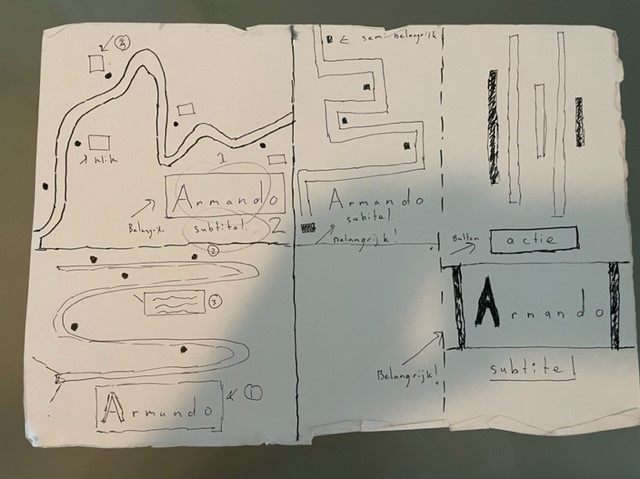 3
1
klik
Armando
Belangrijk
subtitel
2
2
3
Armando
1
semi-belangrijk
Armando
subitel.
Belangrijk!
Button
actie
Armando
Belangrijk!
subtitel